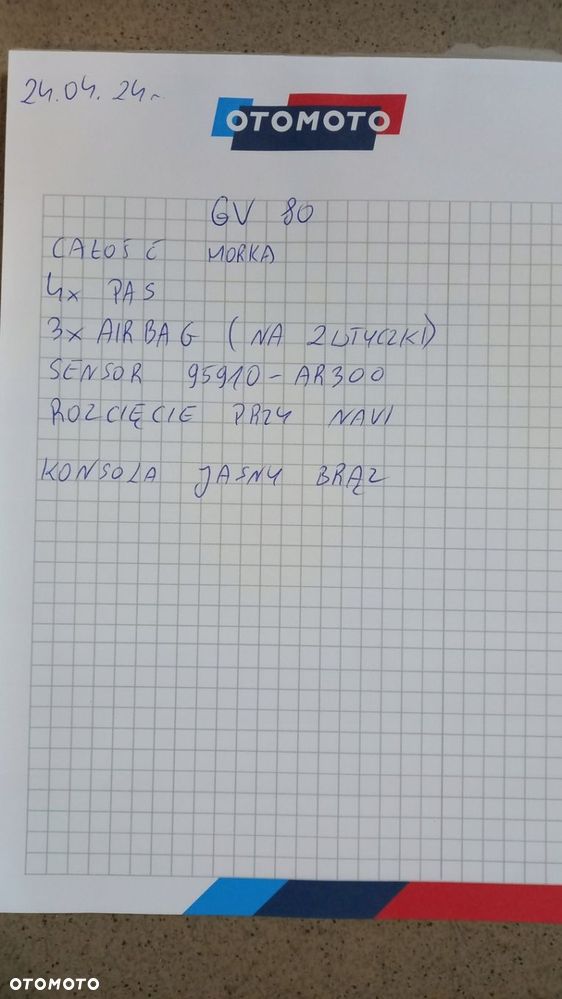 24.04.24r
OTOMOTO
GV 80
CAŁOŚĆ MOKKA
4x PAS
3x AIRBAG (NA 2 WTYCZKI)
SENSOR 95910-AR300
ROZCIĘCIE PRZY NAVI
KONSOLA JASNY BRĄZ
OTOMOTO